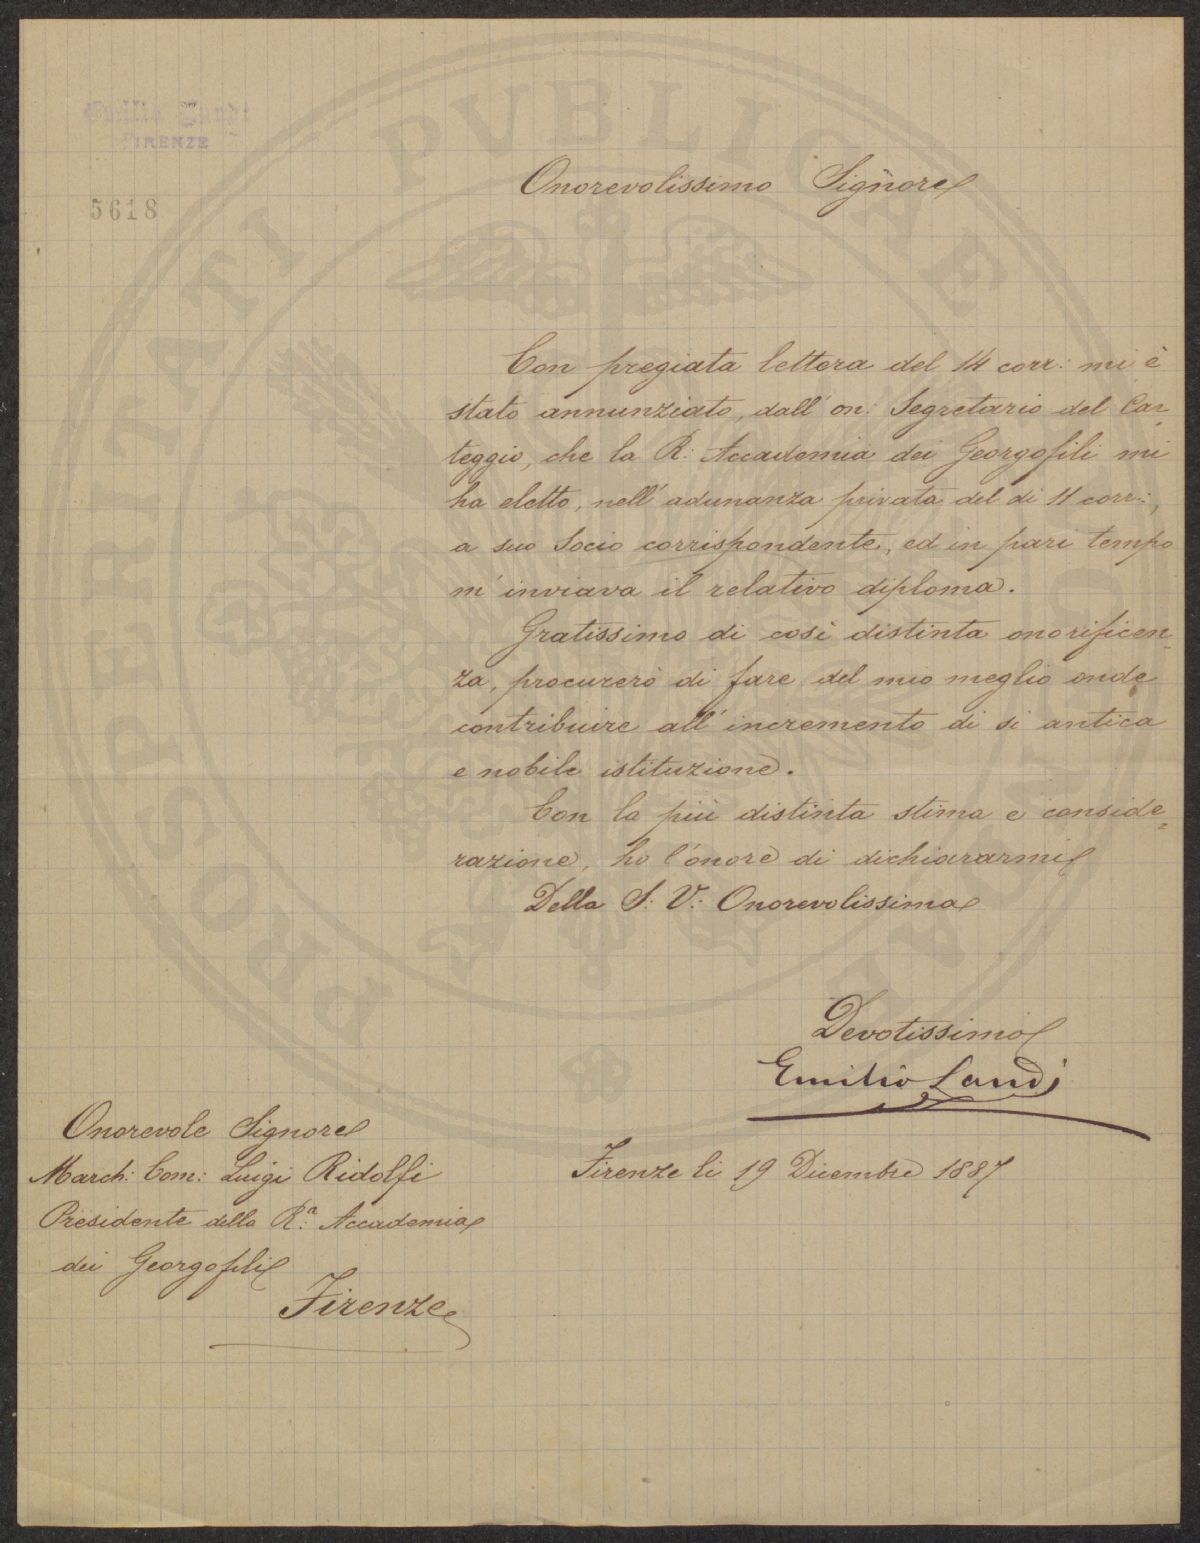 Emilio Landi
FIRENZE
5618
Onorevolissimo Signore
Con pregiata lettera del 14 corr: mi è
stato annunziato, dall' on: Segretario del Car-
teggio, che la R: Accademia dei Georgofili mi
ha eletto, nell' adunanza privata del di 11 corr:,
a suo Socio corrispondente, ed in pari tempo
m' inviava il relativo diploma.
Gratissimo di così distinta onorificen=
za, procurerò di fare del mio meglio onde
contribuire all' incremento di si antica
e nobile istituzione.
Con la più distinta stima e conside=
razione, ho l'onore di dichiararmi
Della S: V: Onorevolissima
Devotissimo
Emilio Landi
Firenze li 19 Dicembre 1887
Onorevole Signore
March: Com: Luigi Ridolfi
Presidente della R.ª Accademia
dei Georgofili
Firenze
PROSPERITATI PVBLICAE AVGENDAE